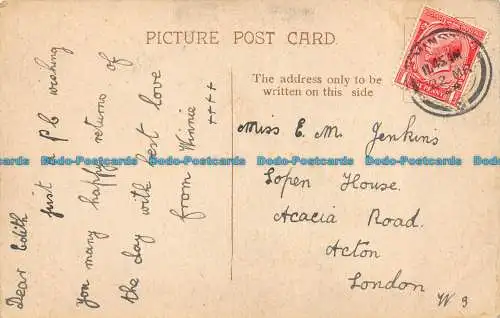 PICTURE POST CARD.
The address only to be
written on this side
Dear Edith
just a p b wishing
you many happy returns of
the day with best love
from Winnie
++++
Miss E. M. Jenkins
Lopen House.
Acacia Road.
Acton
London
W 3
Dodo-Postcards Dodo-Postcards Dodo-Postcards Dodo-Postcards Dodo-Postcards